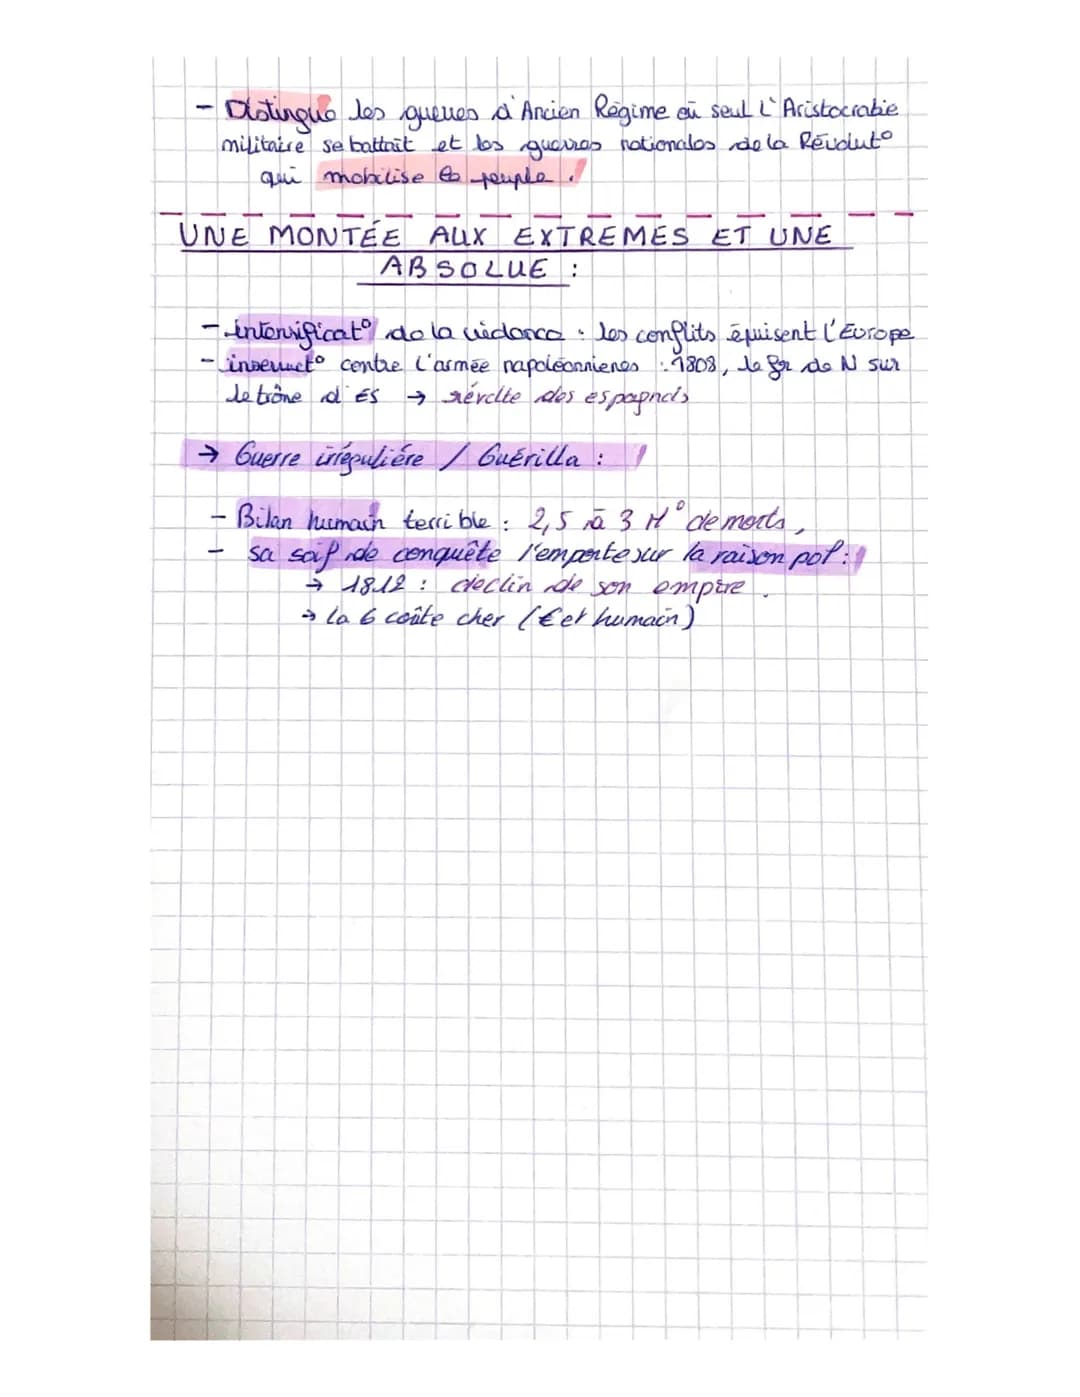 - Distingue les guerres d'Ancien Régime où seul l'Aristocratie
militaire se battait et les guerres nationales de la Révolut°
qui mobilise le peuple.
UNE MONTÉE AUX EXTREMES ET UNE
ABSOLUE :
- intensificat° de la violence : les conflits épuisent l'Europe
- insurrect° contre l'armée napoléonnienes : 1808, le fr de N sur
le trône d'ES → révolte des espagnols
→ Guerre irrégulière / Guérilla :
- Bilan humain terrible : 2,5 à 3 M° de morts,
- sa soif de conquête l'emporte sur la raison pol :
→ 1812 : declin de son empire.
→ la G coûte cher (€ et humain)